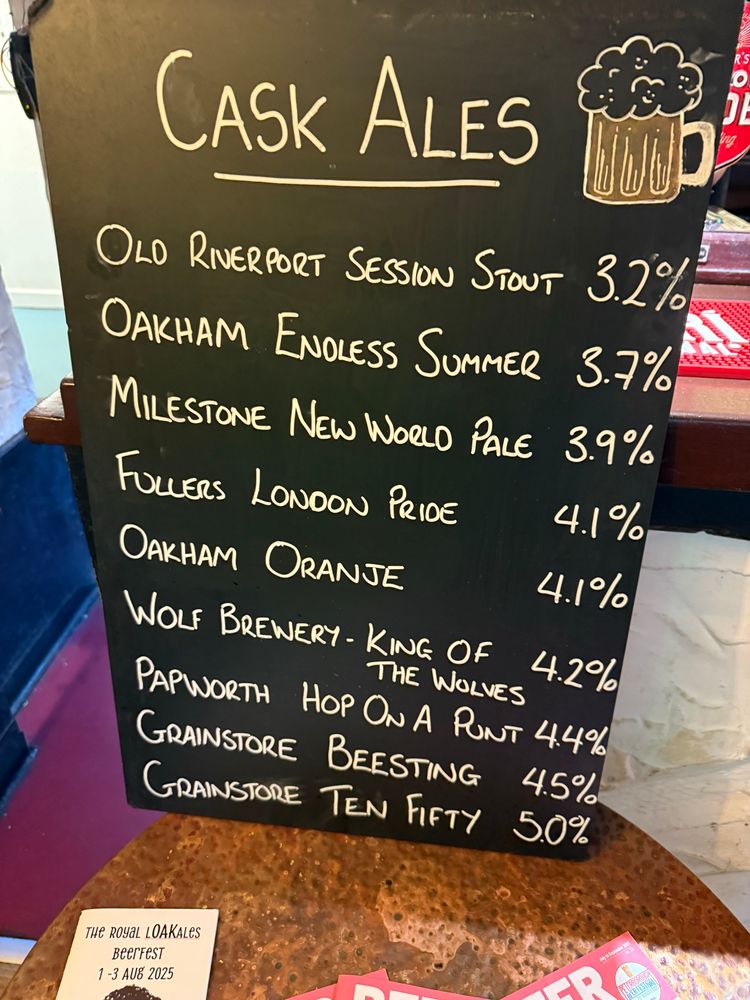 CASK ALES
OLD RIVERPORT SESSION STOUT 3.2%
OAKHAM ENDLESS SUMMER 3.7%
MILESTONE NEW WORLD PALE 3.9%
FULLERS LONDON PRIDE 4.1%
OAKHAM ORANJE 4.1%
WOLF BREWERY - KING OF
THE WOLVES 4.2%
PAPWORTH HOP ON A PUNT 4.4%
GRAINSTORE BEESTING 4.5%
GRAINSTORE TEN FIFTY 5.0%
THE ROYAL LOAKALES
BEERFEST
1-3 AUG 2025